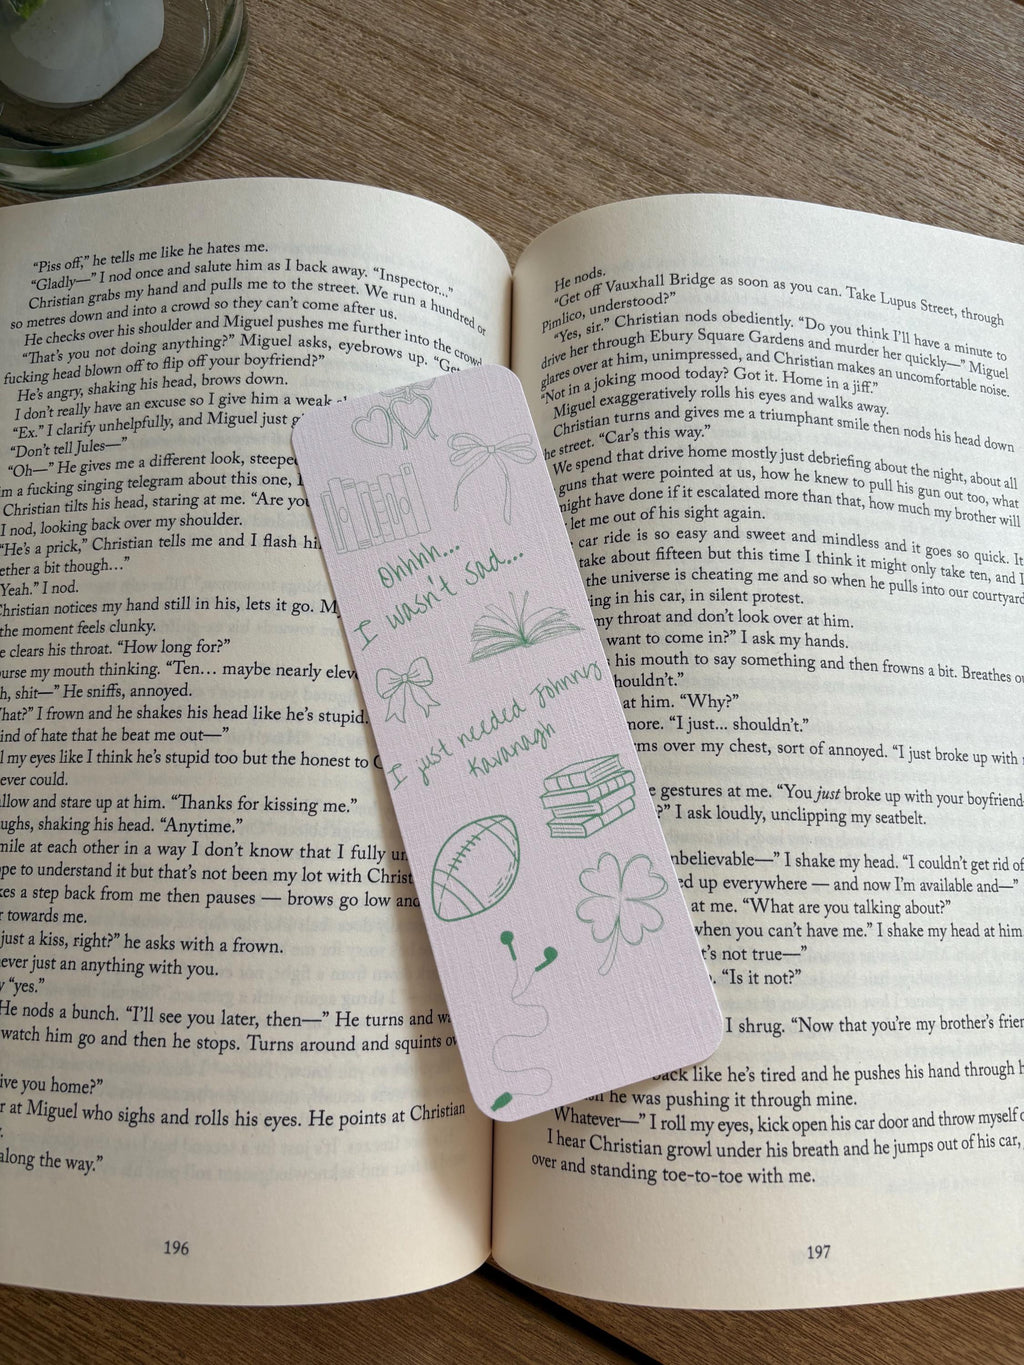 “Piss off,” he tells me like he hates me.
“Gladly—” I nod once and salute him as I back away. “Inspector...”
Christian grabs my hand and pulls me to the street. We run a hundred or
so metres down and into a crowd so they can’t come after us.
He checks over his shoulder and Miguel pushes me further into the crowd
“That’s you not doing anything?” Miguel asks, eyebrows up. “Get
fucking head blown off to flip off your boyfriend?”
He’s angry, shaking his head, brows down.
I don’t really have an excuse so I give him a weak
“Ex.” I clarify unhelpfully, and Miguel just
“Don’t tell Jules—”
“Oh—” He gives me a different look, steeped
a fucking singing telegram about this one,
Christian tilts his head, staring at me. “Are you
I nod, looking back over my shoulder.
“He’s a prick,” Christian tells me and I flash
a bit though...”
Yeah.” I nod.
Christian notices my hand still in his, lets it go.
the moment feels clunky.
clears his throat. “How long for?”
my mouth thinking. “Ten... maybe nearly
shit—” He sniffs, annoyed.
I frown and he shakes his head like he’s stupid.
kind of hate that he beat me out—”
my eyes like I think he’s stupid too but the honest to
ever could.
and stare up at him. “Thanks for kissing me.”
shaking his head. “Anytime.”
at each other in a way I don’t know that I fully
to understand it but that’s not been my lot with
a step back from me then pauses — brows go low and
towards me.
just a kiss, right?” he asks with a frown.
never just an anything with you.
“yes.”
He nods a bunch. “I’ll see you later, then—” He turns and
watch him go and then he stops. Turns around and squints
you home?”
at Miguel who sighs and rolls his eyes. He points at Christian
along the way.”
196
Ohhhh...
I wasn't sad...
I just needed Johnny
Kavanagh
He nods.
“Get off Vauxhall Bridge as soon as you can. Take Lupus Street, through
Pimlico, understood?”
“Yes, sir.” Christian nods obediently. “Do you think I’ll have a minute to
drive her through Ebury Square Gardens and murder her quickly—” Miguel
glares over at him, unimpressed, and Christian makes an uncomfortable noise.
“Not in a joking mood today? Got it. Home in a jiff.”
Miguel exaggeratively rolls his eyes and walks away.
Christian turns and gives me a triumphant smile then nods his head down
the street. “Car’s this way.”
We spend that drive home mostly just debriefing about the night, about all
guns that were pointed at us, how he knew to pull his gun out too, what
might have done if it escalated more than that, how much my brother will
let me out of his sight again.
car ride is so easy and sweet and mindless and it goes so quick. It
take about fifteen but this time I think it might only take ten, and I
the universe is cheating me and so when he pulls into our courtyard
in his car, in silent protest.
my throat and don’t look over at him.
want to come in?” I ask my hands.
his mouth to say something and then frowns a bit. Breathes
shouldn’t.”
at him. “Why?”
more. “I just... shouldn’t.”
over my chest, sort of annoyed. “I just broke up with
gestures at me. “You just broke up with your boyfriend
I ask loudly, unclipping my seatbelt.
I shake my head. “I couldn’t get rid of
up everywhere — and now I’m available and—”
at me. “What are you talking about?”
when you can’t have me.” I shake my head at him
not true—”
“Is it not?”
I shrug. “Now that you’re my brother’s
back like he’s tired and he pushes his hand through
he was pushing it through mine.
Whatever—” I roll my eyes, kick open his car door and throw myself
I hear Christian growl under his breath and he jumps out of his car,
over and standing toe-to-toe with me.
197